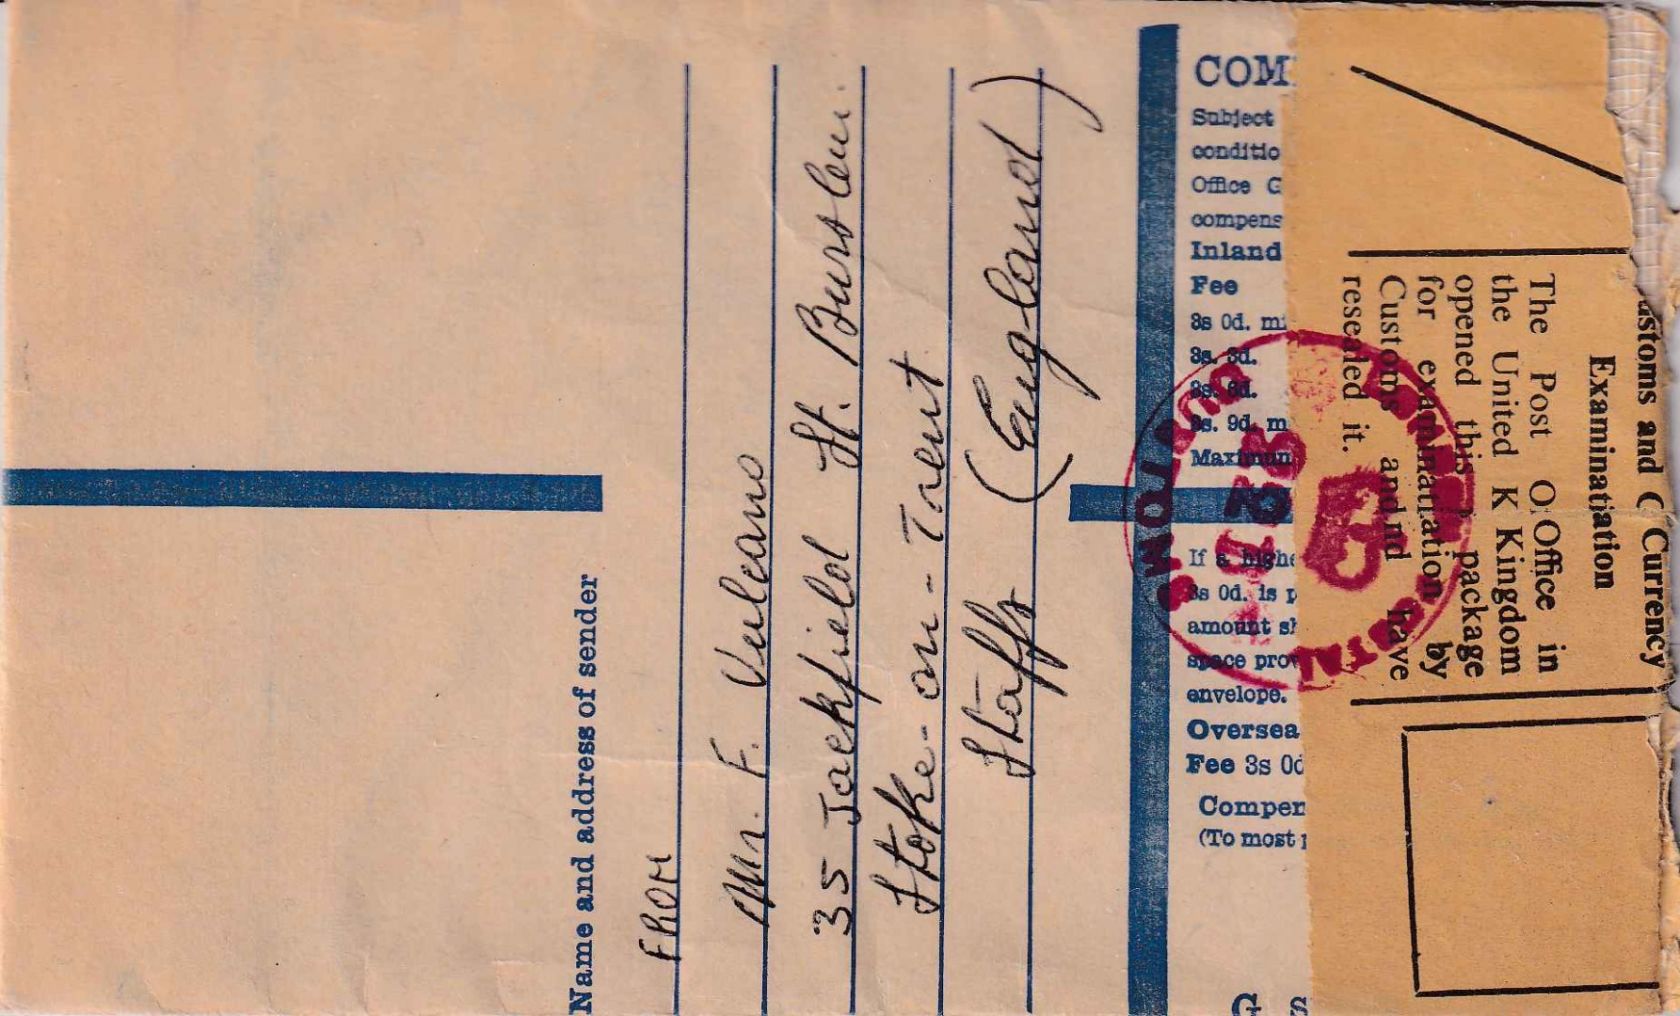 Name and address of sender
FROM
Mr. F. Vulcano
35 Jackfield St. Burslem.
Stoke-on-Trent
Staffs (England)
COM
Subject
conditio
Office G
compens
Inland
Fee
3s 0d. mi
3s. 3d.
3s. 6d.
3s. 9d. m
Maximum
If a highe
3s 0d. is p
amount sh
space prov
envelope.
Oversea
Fee 3s 0d
Compen
(To most p
ustoms and C Currency
Examinatiation
The Post O Office in
the United K Kingdom
opened this package
for examinatiation by
Customs andnd have
resealed it.
CUSTOMS
POSTAL